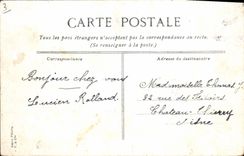 3
CARTE POSTALE
Tous les pays étrangers n'acceptent pas la correspondance au recto.
(Se renseigner à la poste.)
Correspondance
Adresse du destinataire
Bonjour chez vous
Lucien Rolland
Mademoiselle Thomas
32 rue des
Chateau Thierry
Aisne